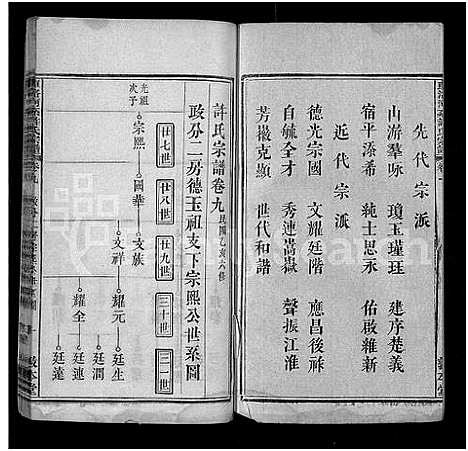 先代宗派
山游羣咏　瓊玉瑾珏　建序楚義
宿平添希　純士思永　佑啟雜新
近代宗派
德光宗國　文耀廷階　應昌後祚
自毓全才　秀連嵩嶽　聲振江淮
芳徽克顯　世代和諧
許氏宗譜卷九民國乙亥六修
政分二房德玉祖支下宗熙公世系圖
廿七世
廿八世
廿九世
三十世
三一世
光祖次子
宗熙
國華
文族
文祥
耀元
耀全
廷生
廷潤
廷連
廷遠